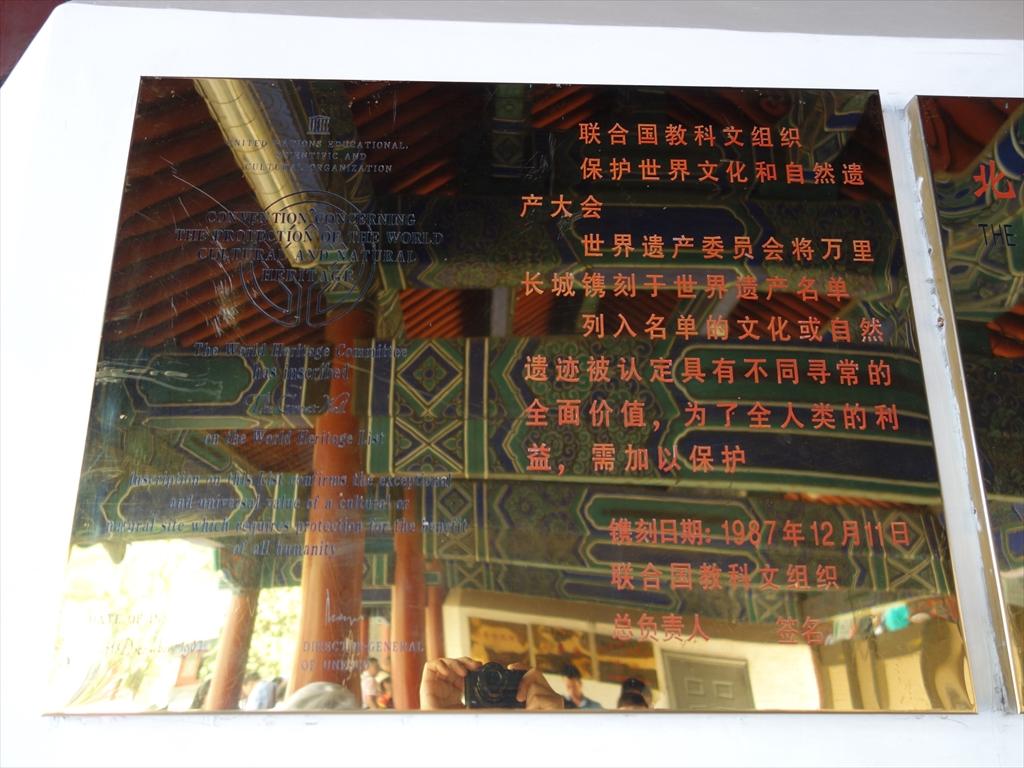 UNITED NATIONS EDUCATIONAL,
SCIENTIFIC AND
CULTURAL ORGANIZATION
CONVENTION CONCERNING
THE PROTECTION OF THE WORLD
CULTURAL AND NATURAL
HERITAGE
The World Heritage Committee
has inscribed
The Great Wall
on the World Heritage List
Inscription on this List confirms the exceptional
and universal value of a cultural or
natural site which requires protection for the benefit
of all humanity
DIRECTOR-GENERAL
OF UNESCO
联合国教科文组织
保护世界文化和自然遗
产大会
世界遗产委员会将万里
长城镌刻于世界遗产名单
列入名单的文化或自然
遗迹被认定具有不同寻常的
全面价值，为了全人类的利
益，需加以保护
镌刻日期：1987年12月11日
联合国教科文组织
总负责人 签名
北
THE